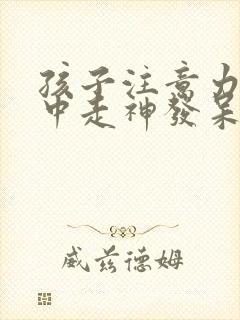 孩子注意力
中走神發呆
威茲德姆